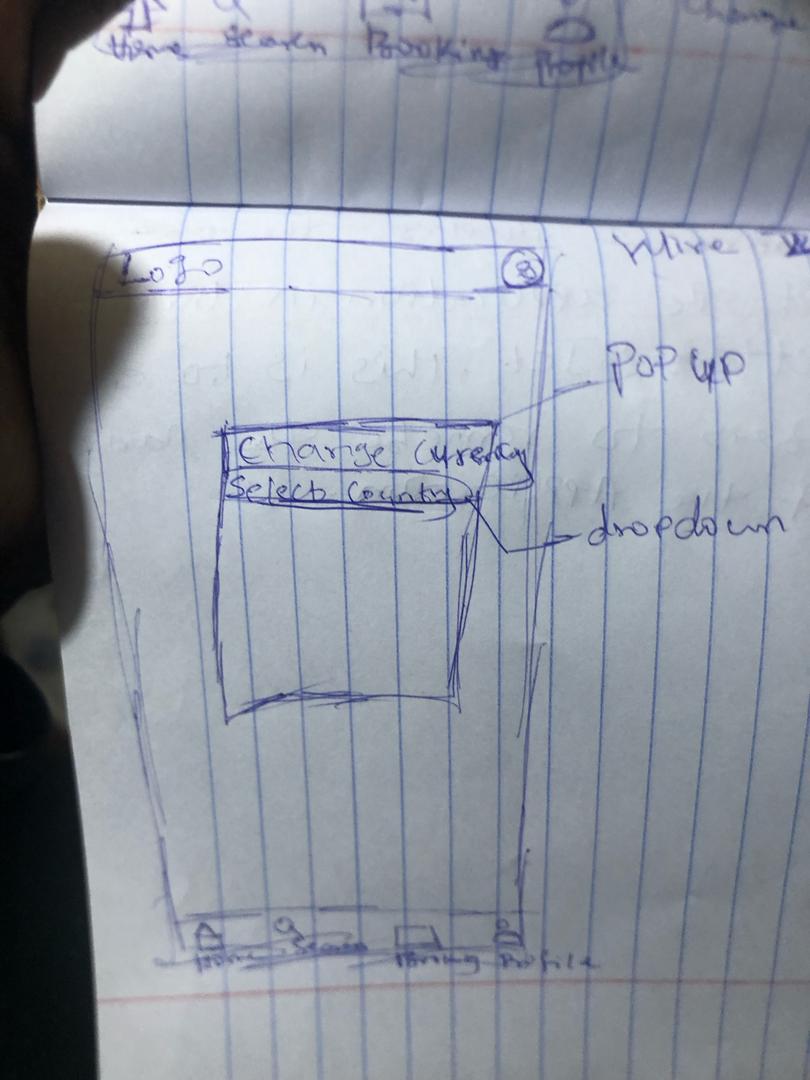 Home Search Booking Profile
Change
Wire
Logo
Pop up
Change Currency
Select Country
dropdown
Home Search Profile